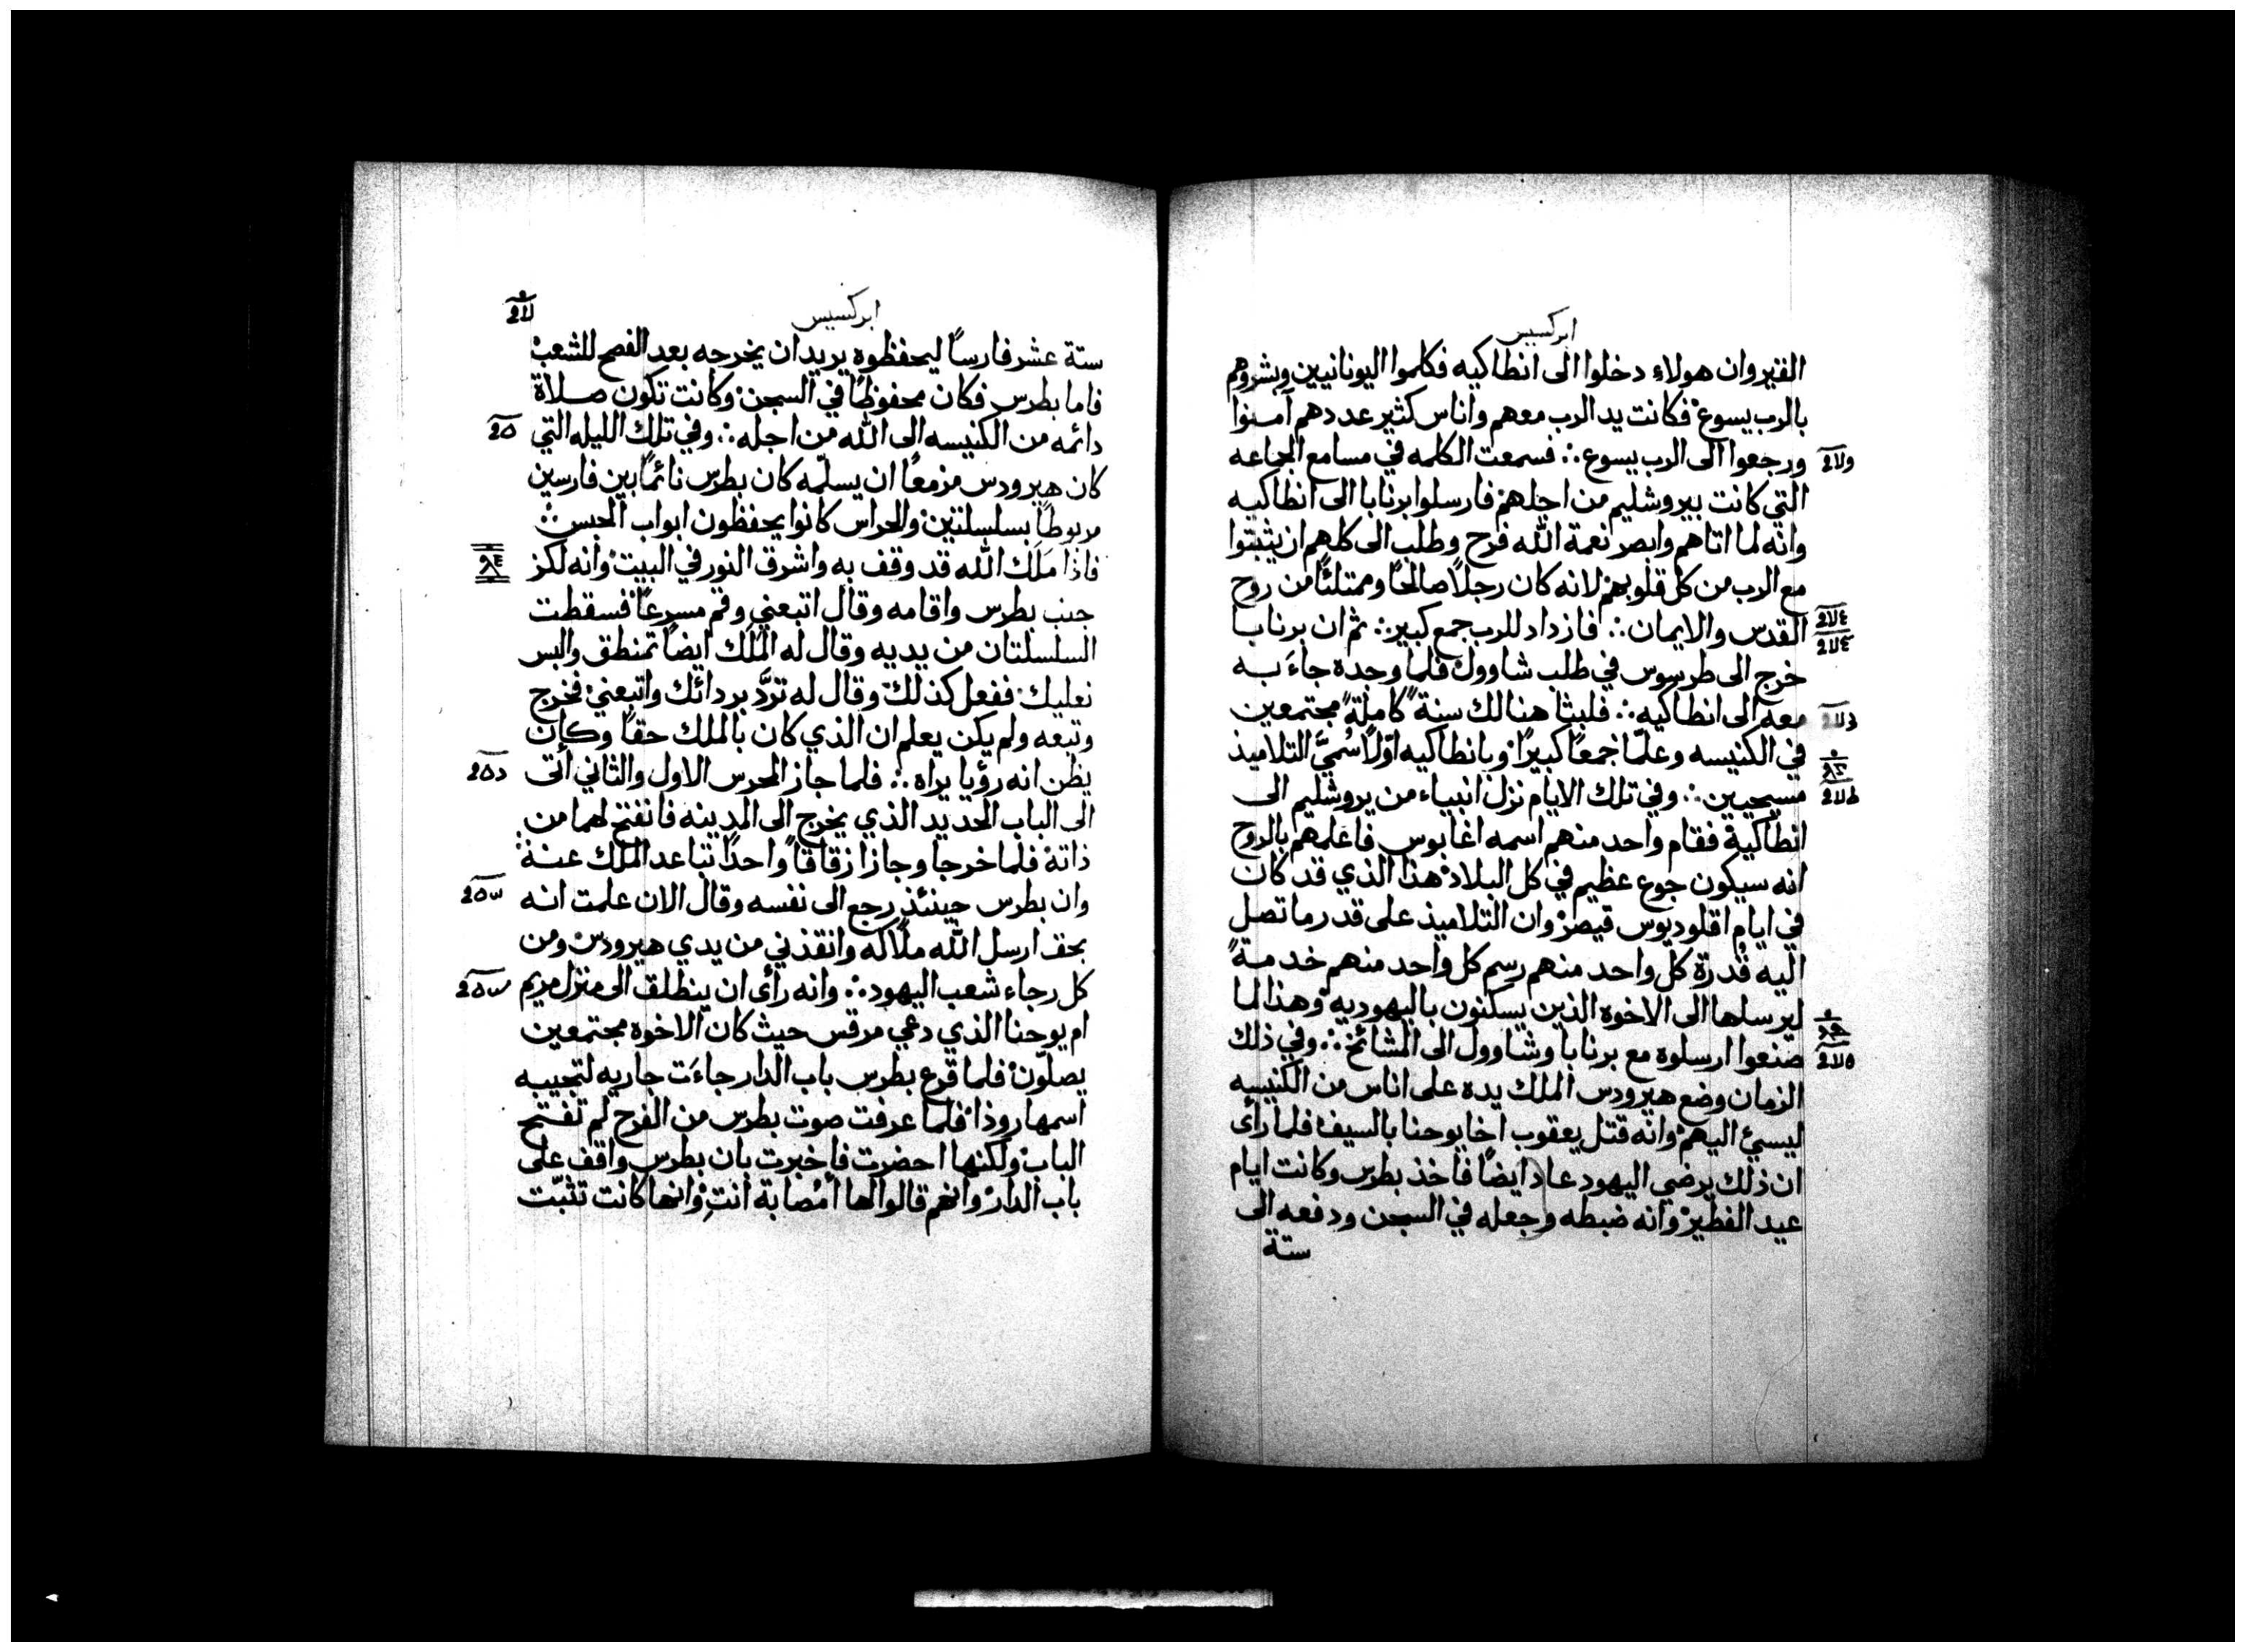 ابركسيس
القيروان هولاء دخلوا الى انطاكيه فكلموا اليونانيين وبشروهم
بالرب يسوع فكانت يد الرب معهم واناس كثير عددهم آمنوا
ورجعوا الى الرب يسوع ∴ فسمعت الكلمه في مسامع الجماعه
التي كانت بيروشليم من اجلهم فارسلوا برنابا الى انطاكيه
وانه لما اتاهم وابصر نعمة الله فرح وطلب الى كلهم ان يثبتوا
مع الرب من كل قلوبهم لانه كان رجلاً صالحًا وممتلئًا من روح
القدس والايمان ∴ فازداد للرب جمع كبير ∴ ثم ان برنابا
خرج الى طرسوس في طلب شاوول فلما وجده جاءَ به
معه الى انطاكيه ∴ فلبثا هنالك سنةً كاملةً مجتمعين
في الكنيسه وعلّما جمعًا كبيرًا وبانطاكيه اولاً سُميَّ التلاميذ
مسيحيين ∴ وفي تلك الايام نزل انبياء من يروشليم الى
انطاكية فقام واحد منهم اسمه اغابوس فاعلمهم بالروح
انه سيكون جوع عظيم في كل البلاد هذا الذي قد كان
في ايام اقلوديوس قيصر وان التلاميذ على قدر ما تصل
اليه قدرة كل واحد منهم رسم كل واحد منهم خدمةً
ليرسلها الى الاخوه الذين يسكنون باليهوديه وهذا لما
صنعوا ارسلوه مع برنابا وشاوول الى المشائخ ∴ وفي ذلك
الزمان وضع هيرودس الملك يده على اناس من الكنيسه
ليسيئ اليهم وانه قتل يعقوب اخا يوحنا بالسيف فلما رأى
ان ذلك يرضي اليهود عاد ايضًا فاخذ بطرس وكانت ايام
عيد الفطير وانه ضبطه وجعله في السجن ودفعه الى
ستة
ابركسيس
ستة عشر فارسًا ليحفظوه يريد ان يخرجه بعد الفصح للشعب
فاما بطرس فكان محفوظًا في السجن وكانت تكون صلاة
دائمه من الكنيسه الى الله من اجله ∴ وفي تلك الليله التي
كان هيرودس مزمعًا ان يسلّمه كان بطرس نائمًا بين فارسين
مربوطًا بسلسلتين والحراس كانوا يحفظون ابواب الحبس
فاذا مَلَك الله قد وقف به واشرق النور في البيت وانه لكز
جنب بطرس واقامه وقال اتبعني وقم مسرعًا فسقطت
السلسلتان من يديه وقال له المَلَك ايضًا تمنطق والبس
نعليك ففعل كذلك وقال له تردَّ بردائك واتبعني فخرج
وتبعه ولم يكن يعلم ان الذي كان بالملك حقًا وكان
يظن انه رؤيا يراه ∴ فلما جاز المحرس الاول والثاني أتى
الى الباب الحديد الذي يخرج الى المدينه فانفتح لهما من
ذاته فلما خرجا وجازا زقاقًا واحدًا تباعد الملك عنه
وان بطرس حينئذٍ رجع الى نفسه وقال الان علمت انه
بحق ارسل الله ملاكه وانقذني من يدي هيرودس ومن
كل رجاء شعب اليهود ∴ وانه رأى ان ينطلق الى منزل مريم
ام يوحنا الذي دعي مرقس حيث كان الاخوه مجتمعين
يصلّون فلما قرع بطرس باب الدار جاءَت جاريه لتجيبه
اسمها روذا فلما عرفت صوت بطرس من الفرح لم تفتح
الباب ولكنها احضرت فاخبرت بان بطرس واقف على
باب الدار وانهم قالوا لها أمُصابة انتِ وانها كانت تثبّت